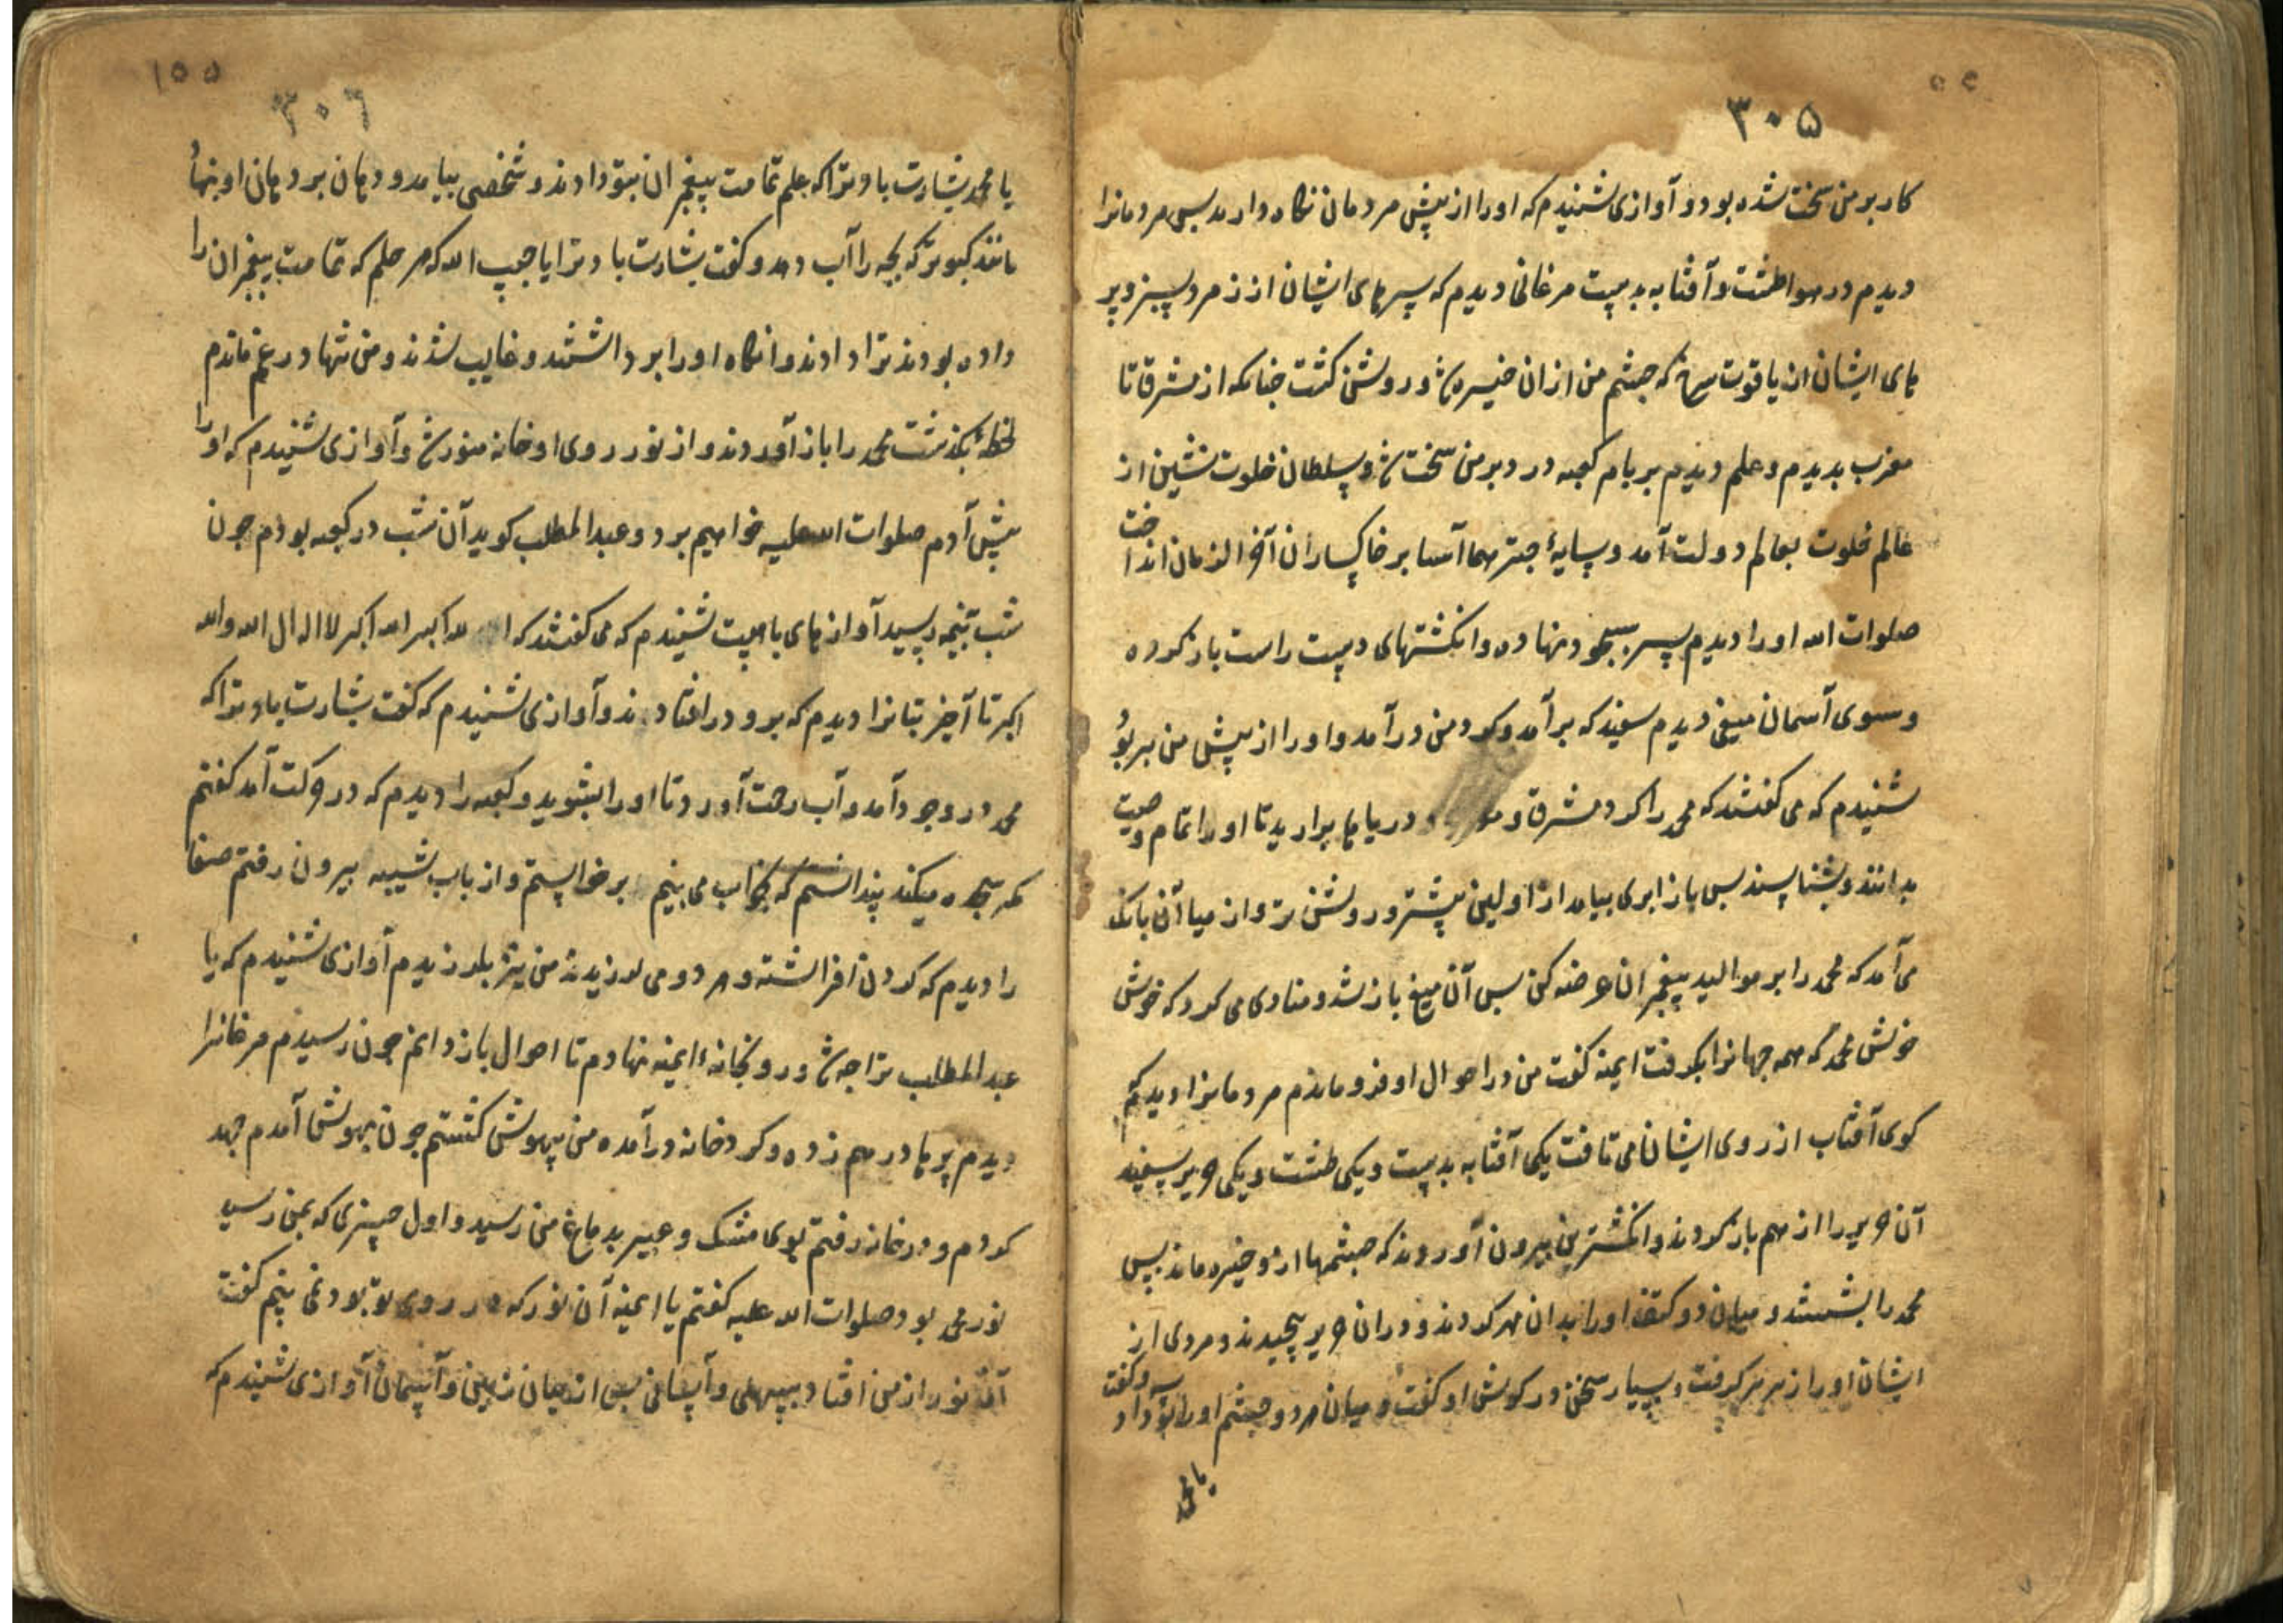 ۳۰۵
کار بر من سخت شده بود و آوازی شنیدم که او را از پیش مردمان نگاه دارید پس مردمانرا
دیدم در هوا طشت و آفتابه بدست مرغانی دیدم که پرهای ایشان از زمرد سبز و پر
پای ایشان از یاقوت سرخ که چشم من از ان خیره شد و روشن گشت چنانکه از مشرق تا
مغرب بدیدم و علم دیدم بر بام کعبه درد بر من سخت شد و سلطان خلوت نشین از
عالم خلوت بعالم دولت آمد و سایهٔ چتر هما آسا بر خاکساران آخر الزمان انداخت
صلوات الله او را دیدم سر بسجود نهاده و انکشتهای دست راست باز کرده
و سوی آسمان میغی دیدم سفید که بر آمد و کرد من در آمد و او را از پیش من بربود
شنیدم که می کفتند که محمد را کرد مشرق و دریاها برارید تا او را تمام وصیت
بدانند و بشناسند پس باز ابری بیامد از اولین بیشتر و روشن تر و از میان آن بانک
می آمد که محمد را بر موالید پیغمبران عرضه کن پس آن میغ باز شد و منادی می کرد که خوش
خوش محمد که همه جهانرا بکرفت ایمنه کفت من در احوال او فرو ماندم مردمانرا دیدم
کوی آفتاب از روی ایشان می تافت یکی آفتابه بدست و یکی طشت و یکی حریر سفید
آن حریر را از هم باز کردند و انکشترین بیرون آوردند که چشمها ازو خیره ماند پس
محمد را بشستند و میان دو کتف او را بدان مهر کردند و دران حریر پیچیدند و مردی از
ایشان او را زیر پر کرفت و بسیار سخن در کوش او کفت و میان هر دو چشم او را بوسه داد و کفت
یا محمد
۱۵۵
۳۰۶
یا محمد بشارت باد ترا که علم تمامت پیغمبران بتو دادند و شخصی بیامد و دهان بر دهان او بنهاد
مانند کبوتر که بچه را آب دهد و کفت بشارت باد ترا یا حبیب الله که هر حلم که تمامت پیغمبران را
داده بودند ترا دادند و انکاه او را برداشتند و غایب شدند و من تنها در غم ماندم
لحظهٔ بکذشت محمد را باز آوردند و از نور روی او خانه منور شد و آوازی شنیدم که او را
پیش آدم صلوات الله علیه خواهیم برد و عبد المطلب کوید آن شب در کعبه بودم چون
شب بنیمه رسید آوازهای با هیبت شنیدم که می کفتند که الله اکبر الله اکبر لا اله الا الله و الله
اکبر تا آخر بتانرا دیدم که برو در افتادند و آوازی شنیدم که کفت بشارت باد ترا که
محمد در وجود آمد و آب رحمت آورد تا او را بشوید و کعبه را دیدم که در حرکت آمد کفتم
مکر سجده میکند پنداشتم که بخواب می بینم بر خواستم و از باب شیبه بیرون رفتم صفا
را دیدم که کردن افراشته و مردمی لرزیدند من نیز بلرزیدم آوازی شنیدم که یا
عبد المطلب ترا چه شد و رو بخانهٔ ایمنه نهادم تا احوال باز دانم چون رسیدم مرغانرا
دیدم پر ها در هم زده و کرد خانه در آمده من بیهوش کشتم چون بهوش آمدم جهد
کردم و در خانه رفتم بوی مشک و عبیر بدماغ من رسید و اول چیزی که بمن رسید
نور محمد بود صلوات الله علیه کفتم یا ایمنه آن نور که در روی تو بود نمی بینم کفت
آن نور از من افتاد بسهلی و آسانی پس از میان زمین و آسمان آوازی شنیدم که